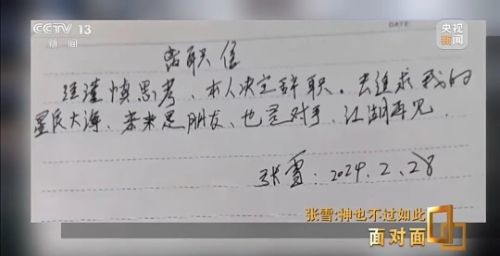 CCTV 13
新闻
央视
新闻
DATE:
离职信
经谨慎思考、本人决定辞职。去追求我的
星辰大海、未来是朋友、也是对手、江湖再见
张雪：2024.2.28
张雪:神也不过如此
面对面